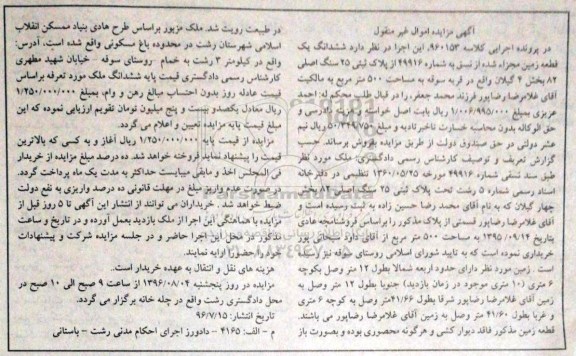 آگهی مزایده اموال غیر منقول
در پرونده اجرایی کلاسه ۹۶۰۱۵۳، این اجرا در نظر دارد ششدانگ یک
قطعه زمین مجزاء شده از نسق به شماره ۴۹۹۱۶ از پلاک ثبتی ۲۵ سنگ اصلی
۸۲ بخش ۴ گیلان واقع در قریه سوقه به مساحت ۵۰۰ متر مربع به مالکیت
آقای غلامرضا رضاپور فرزند محمد جعفر، را در قبال طلب محکوم له: احمد
عزیزی بمبلغ ۱/۰۰۶/۹۹۵/۰۰۰ ریال بابت اصل خواسته و هزینه دادرسی و
حق الوکاله بدون محاسبه خسارت تاخیر تادیه و مبلغ ۵۰/۳۴۹/۷۵۰ ریال نیم
عشر دولتی در حق صندوق دولت از طریق مزایده بفروش برساند. حسب
گزارش تعریف و توصیف کارشناس رسمی دادگستری: ملک مورد نظر
طبق سند ثبتی شماره ۴۹۹۱۶ مورخه ۱۳۶۰/۰۵/۲۵ تنظیمی در دفترخانه
اسناد رسمی شماره ۵ رشت تحت پلاک ثبتی ۲۵ سنگ اصلی ۸۲ بخش
چهار گیلان که به نام آقای محمد رضا حسین زاده به ثبت رسیده است و
آقای غلامرضا رضاپور قسمتی از پلاک مذکور را براساس فروشنامچه عادی
بتاریخ ۱۳۹۵/۰۹/۱۴ به مساحت ۵۰۰ متر مربع از آقای دارد سبحانی پور
خریداری نموده است که به تایید شورای اسلامی روستای سوقه نیز رسیده
است . زمین مورد نظر دارای حدود اربعه شمالا بطول ۱۲ متر وصل بکوچه
۶ متری (۱۰ متری موجود در زمان بازدید) جنوبا بطول ۱۲ متر وصل به
زمین آقای غلامرضا رضاپور شرقا بطول ۴۱/۶۶ متر وصل به کوچه ۶ متری
و غربا بطول ۴۱/۶۰ متر وصل به زمین آقای غلامرضا رضاپور می باشند.
قطعه زمین مذکور فاقد دیوار کشی و هرگونه محصوری بوده و بصورت باز
در طبیعت رویت شد. ملک مزبور براساس طرح هادی بنیاد مسکن انقلاب
اسلامی شهرستان رشت در محدوده باغ مسکونی واقع شده است. آدرس:
واقع در کیلومتر ۳ رشت به خمام - روستای سوقه - خیابان شهید مطهری
کارشناس رسمی دادگستری قیمت پایه ششدانگ ملک مورد تعرفه براساس
قیمت عادله روز بدون احتساب مبالغ رهن و وام، بمبلغ ۱/۲۵۰/۰۰۰/۰۰۰
ریال معادل یکصد و بیست و پنج میلیون تومان تقویم ارزیابی نموده که این
مبلغ قیمت پایه مزایده تعیین و اعلام می گردد.
مزایده از قیمت پایه ۱/۲۵۰/۰۰۰/۰۰۰ ریال آغاز و به کسی که بالاترین
قیمت را پیشنهاد نماید فروخته خواهد شد. ده درصد مبلغ مزایده از خریدار
فی المجلس اخذ و مابقی میبایست حداکثر به مدت یک ماه پرداخت گردد.
در صورت عدم واریز مبلغ در مهلت قانونی ده درصد واریزی به نفع دولت
ضبط خواهد شد. خریداران می توانند از انتشار این آگهی تا ۵ روز قبل از
مزایده با هماهنگی این اجرا از ملک بازدید بعمل آورده و در تاریخ و ساعت
مذکور در محل این اجرا حاضر و در جلسه مزایده شرکت و پیشنهادات
خود را حضورا ارایه نمایند.
هزینه های نقل و انتقال به عهده خریدار است.
مزایده در روز پنجشنبه ۱۳۹۶/۰۸/۰۴ از ساعت ۹ صبح الی ۱۰ صبح در
محل دادگستری رشت واقع در چله خانه برگزار می گردد.
تاریخ انتشار: ۹۶/۷/۱۵
م - الف: ۴۱۶۵ - دادورز اجرای احکام مدنی رشت - باستانی